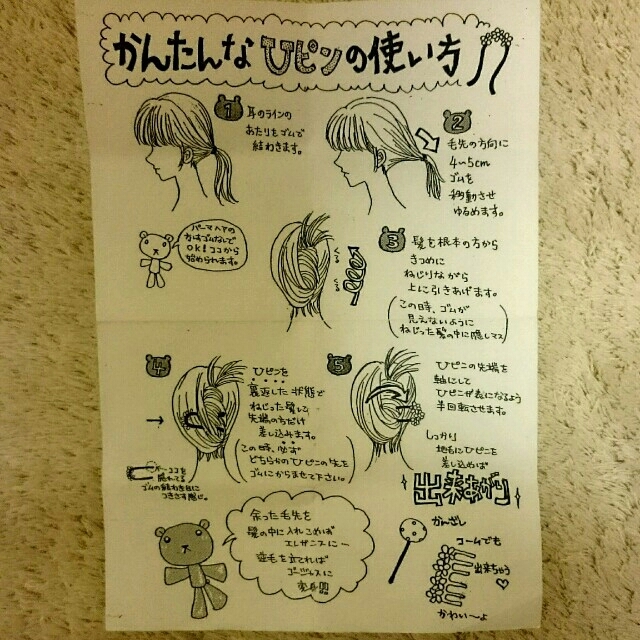 かんたんなUピンの使い方
1
耳のラインの
あたりをゴムで
結わきます。
2
毛先の方向に
4〜5cm
ゴムを
移動させ
ゆるめます。
パーマヘアの
かたはゴムなしで
OK!ココから
始められます。
3
髪を根本の方から
きつめに
ねじりながら
上に引きあげます。
(この時、ゴムが
見えないように
ねじった髪の中に隠してマス)
くる
くる
4
Uピンを
裏返した状態で
ねじった髪に
先端の方だけ
差し込みます。
(この時、必ず
どちらかのUピンの先を
ゴムにからませて下さい。)
ココを
隠れてる
ゴムの結わき目に
つきさす感じ。
5
Uピンの先端を
軸にして
Uピンが表になるよう
半回転させます。
しっかり
地毛にUピンを
差し込めば
出来あがり
余った毛先を
髪の中に入れこめば
エレガンスにー
逆毛を立てれば
ゴージャスに
かんざし
コームでも
出来ちゃう
かわい〜よ